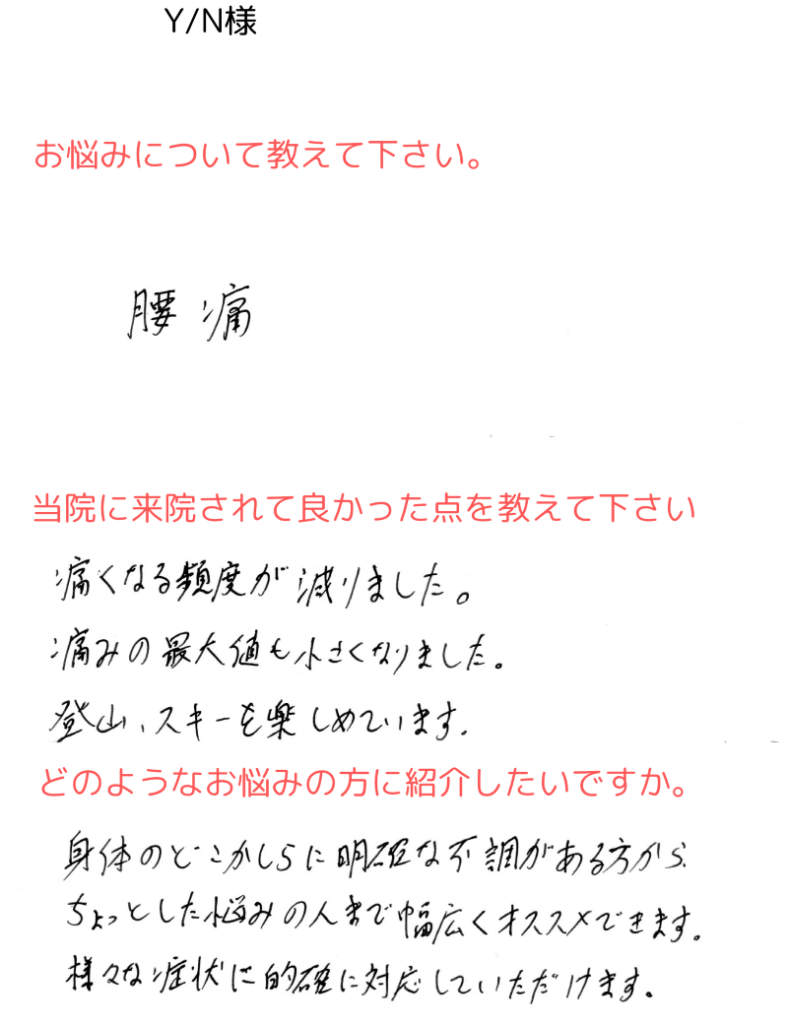 Y/N様
お悩みについて教えて下さい。
腰痛
当院に来院されて良かった点を教えて下さい
痛くなる頻度が減りました。
痛みの最大値も小さくなりました。
登山、スキーを楽しめています。
どのようなお悩みの方に紹介したいですか。
身体のどこかしらに明確な不調がある方から
ちょっとした悩みの人まで幅広くオススメできます。
様々な症状に的確に対応していただけます。